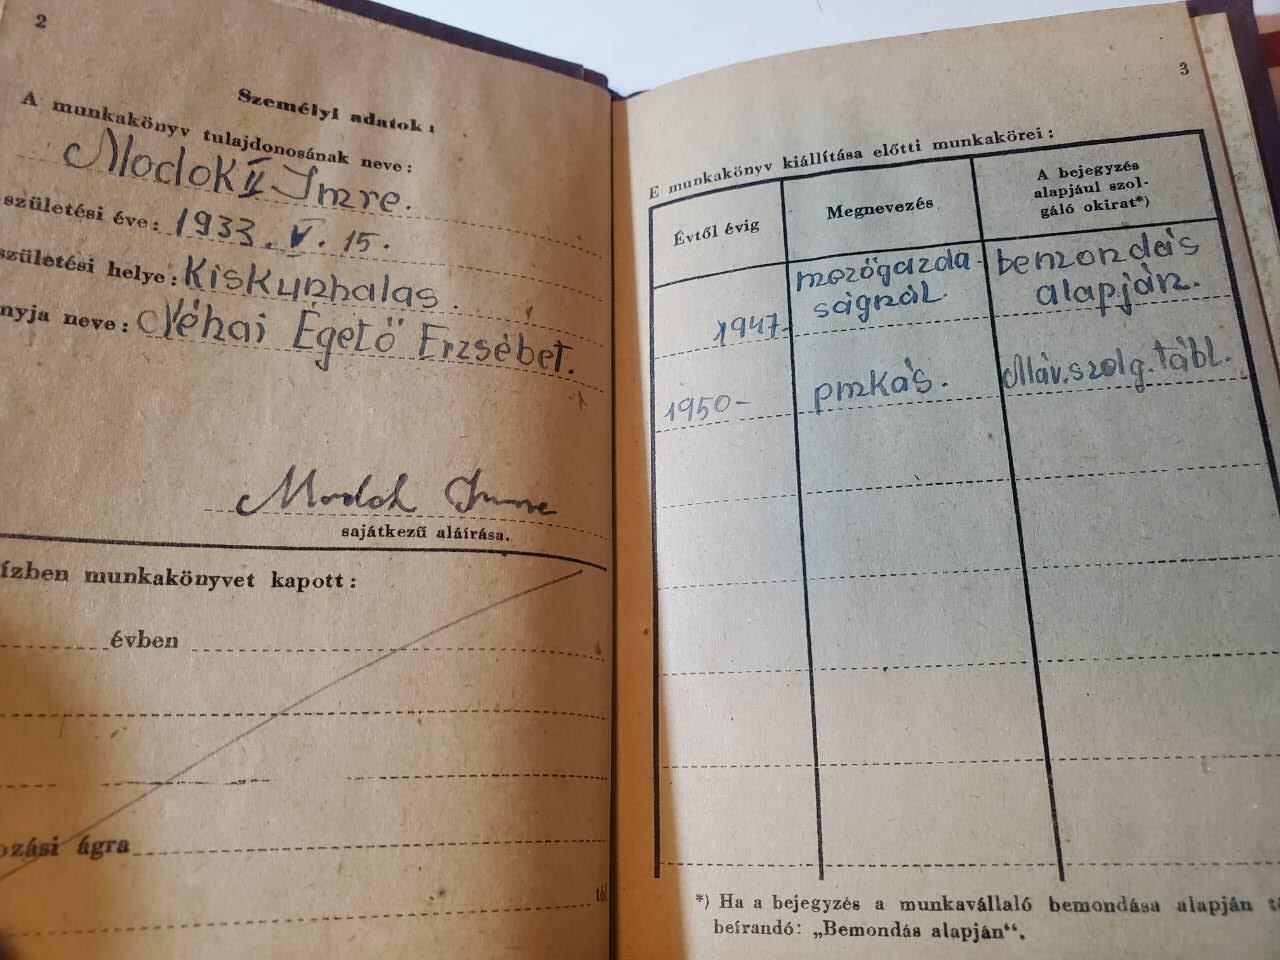 2
Személyi adatok:
A munkakönyv tulajdonosának neve:
Modok II Imre.
születési éve: 1933. V. 15.
születési helye: Kiskunhalas.
nyja neve: Néhai Égető Erzsébet.
Modok Imre
sajátkezű aláírása.
ízben munkakönyvet kapott:
évben
ozási ágra
tól
3
E munkakönyv kiállítása előtti munkakörei:
Évtől évig
Megnevezés
A bejegyzés
alapjául szol-
gáló okirat*)
1947-
mezőgazda-
ságnál.
bemondás
alapján.
1950-
pmkás.
Máv. szolg. tábl.
*) Ha a bejegyzés a munkavállaló bemondása alapján t
beírandó: „Bemondás alapján“.